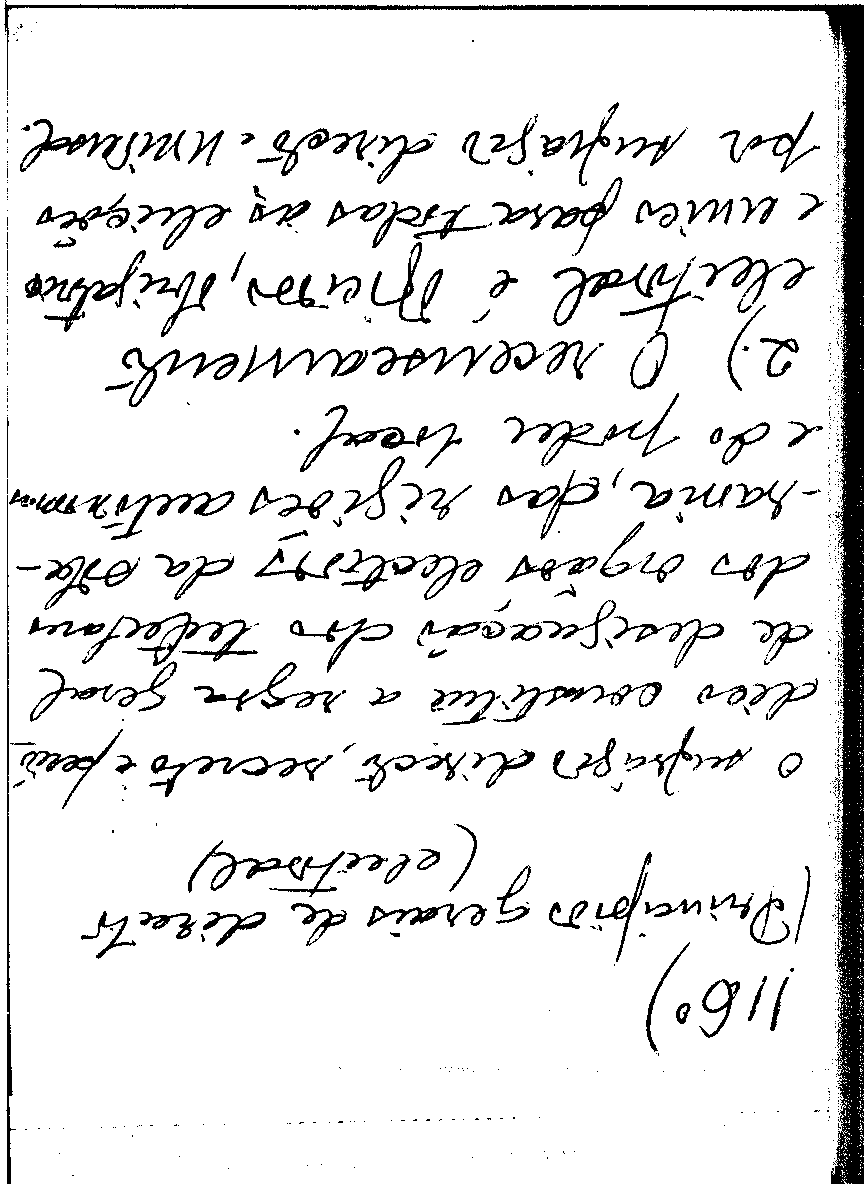 116º)
(Princípios gerais de direito
(eleitoral)
O sufrágio directo, secreto e perió
dico constitui a regra geral
de designação dos titulares
dos orgãos electivos da sobe-
-rania, das regiões autónomas
e do poder local.
2.) O recenseamento
eleitoral é oficioso, obrigatório
e único para todas as eleições
por sufrágio directo e universal.